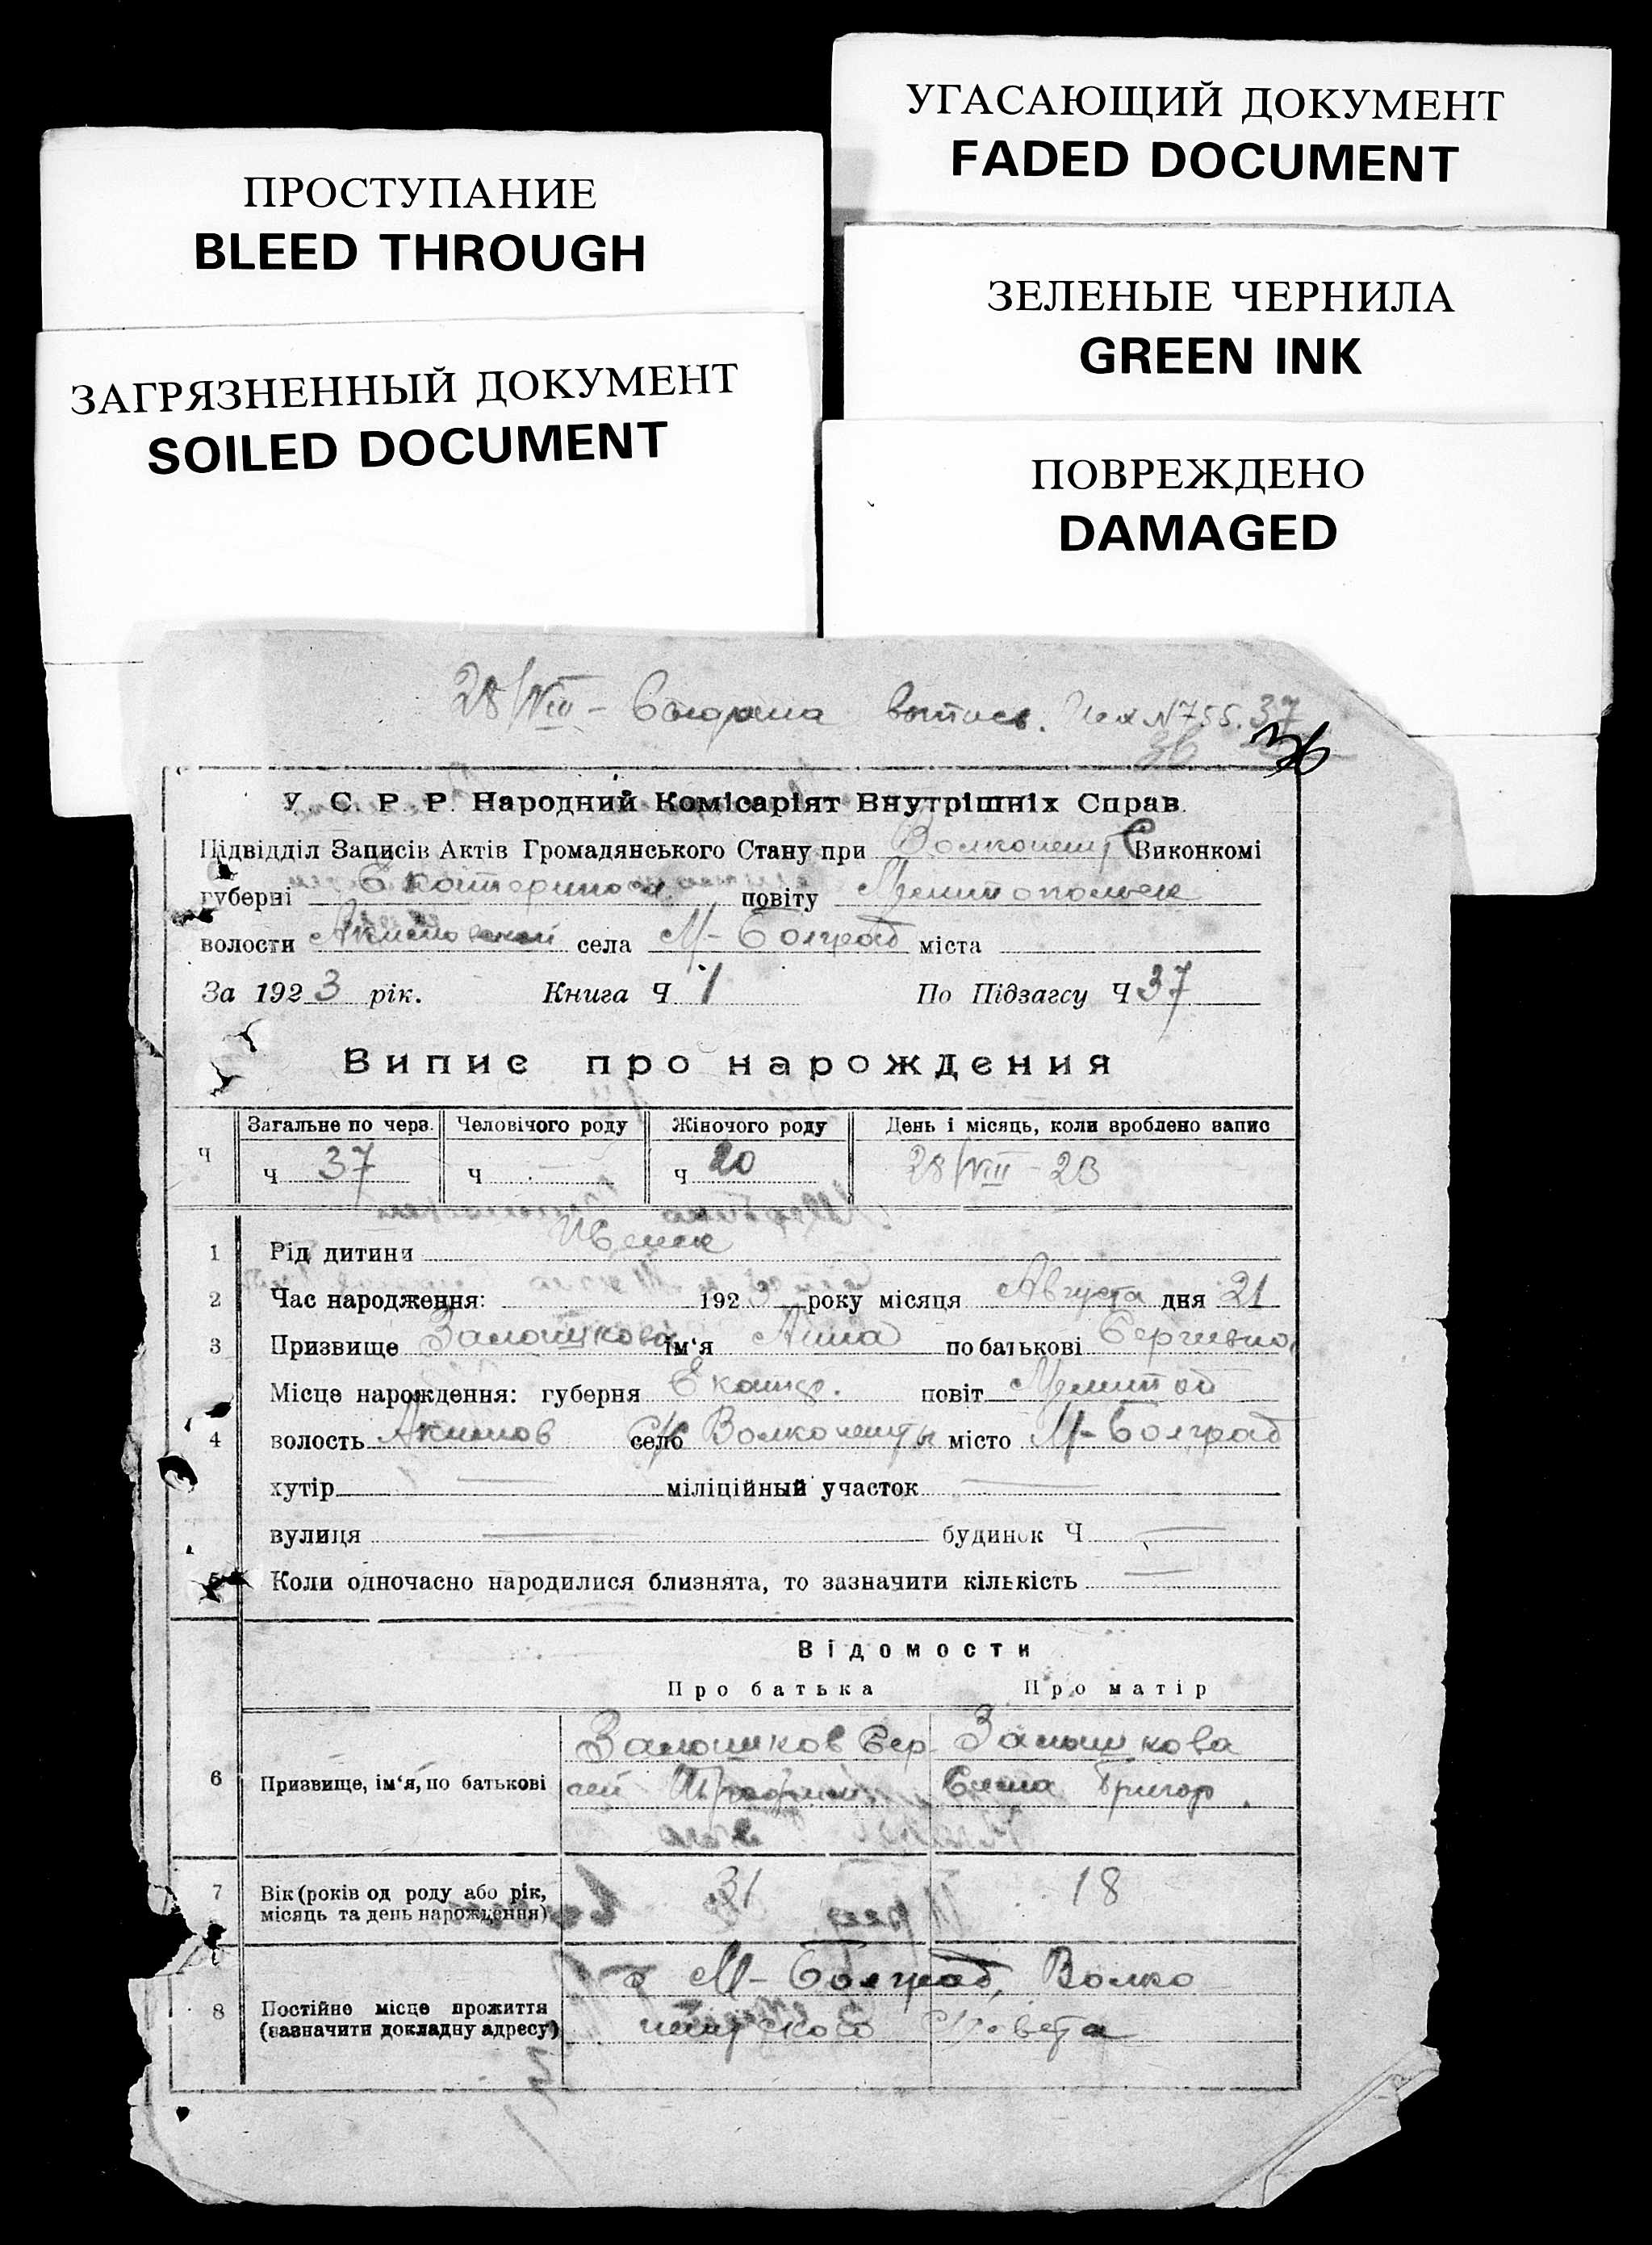 УГАСАЮЩИЙ ДОКУМЕНТ
FADED DOCUMENT
ПРОСТУПАНИЕ
BLEED THROUGH
ЗЕЛЕНЫЕ ЧЕРНИЛА
GREEN INK
ЗАГРЯЗНЕННЫЙ ДОКУМЕНТ
SOILED DOCUMENT
ПОВРЕЖДЕНО
DAMAGED
28/VIII - Выдана выпись. Исх N 755. 37
36 36
У. С. Р. Р. Народний Комісаріят Внутрішніх Справ.
Підвідділ Записів Актів Громадянського Стану при Волконешт Виконкомі
губерні Екатеринослав повіту Мелитопольск
волости Акимовской села М-Болград міста
За 1923 рік. Книга Ч 1 По Підзагсу Ч 37
Випис про нарождения
Загальне по черз. Человічого роду Жіночого роду День і місяць, коли вроблено запис
Ч Ч 37 Ч Ч 20 28/VIII - 23
1 Рід дитини Женск
2 Час народження: 1923 року місяця Августа дня 21
3 Призвище Залошкова ім'я Анна по батькові Сергиевна
Місце нарождення: губерня Екатер. повіт Мелитоп
4 волость Акимов село С/С Волконешты місто М-Болград
хутір міліційный участок
вулиця будинок Ч
5 Коли одночасно народилися близнята, то зазначити кількість
Відомости
Про батька Про матір
6 Призвище, ім'я, по батькові
Залошков Сер- Залошкова
гей Елена Григор.
7 Вік (років од роду або рік, 31 18
місяць та день нарождення)
8 Постійне місце прожиття
(зазначити докладну адресу)
с М-Болград, Волко
нештского С/совета